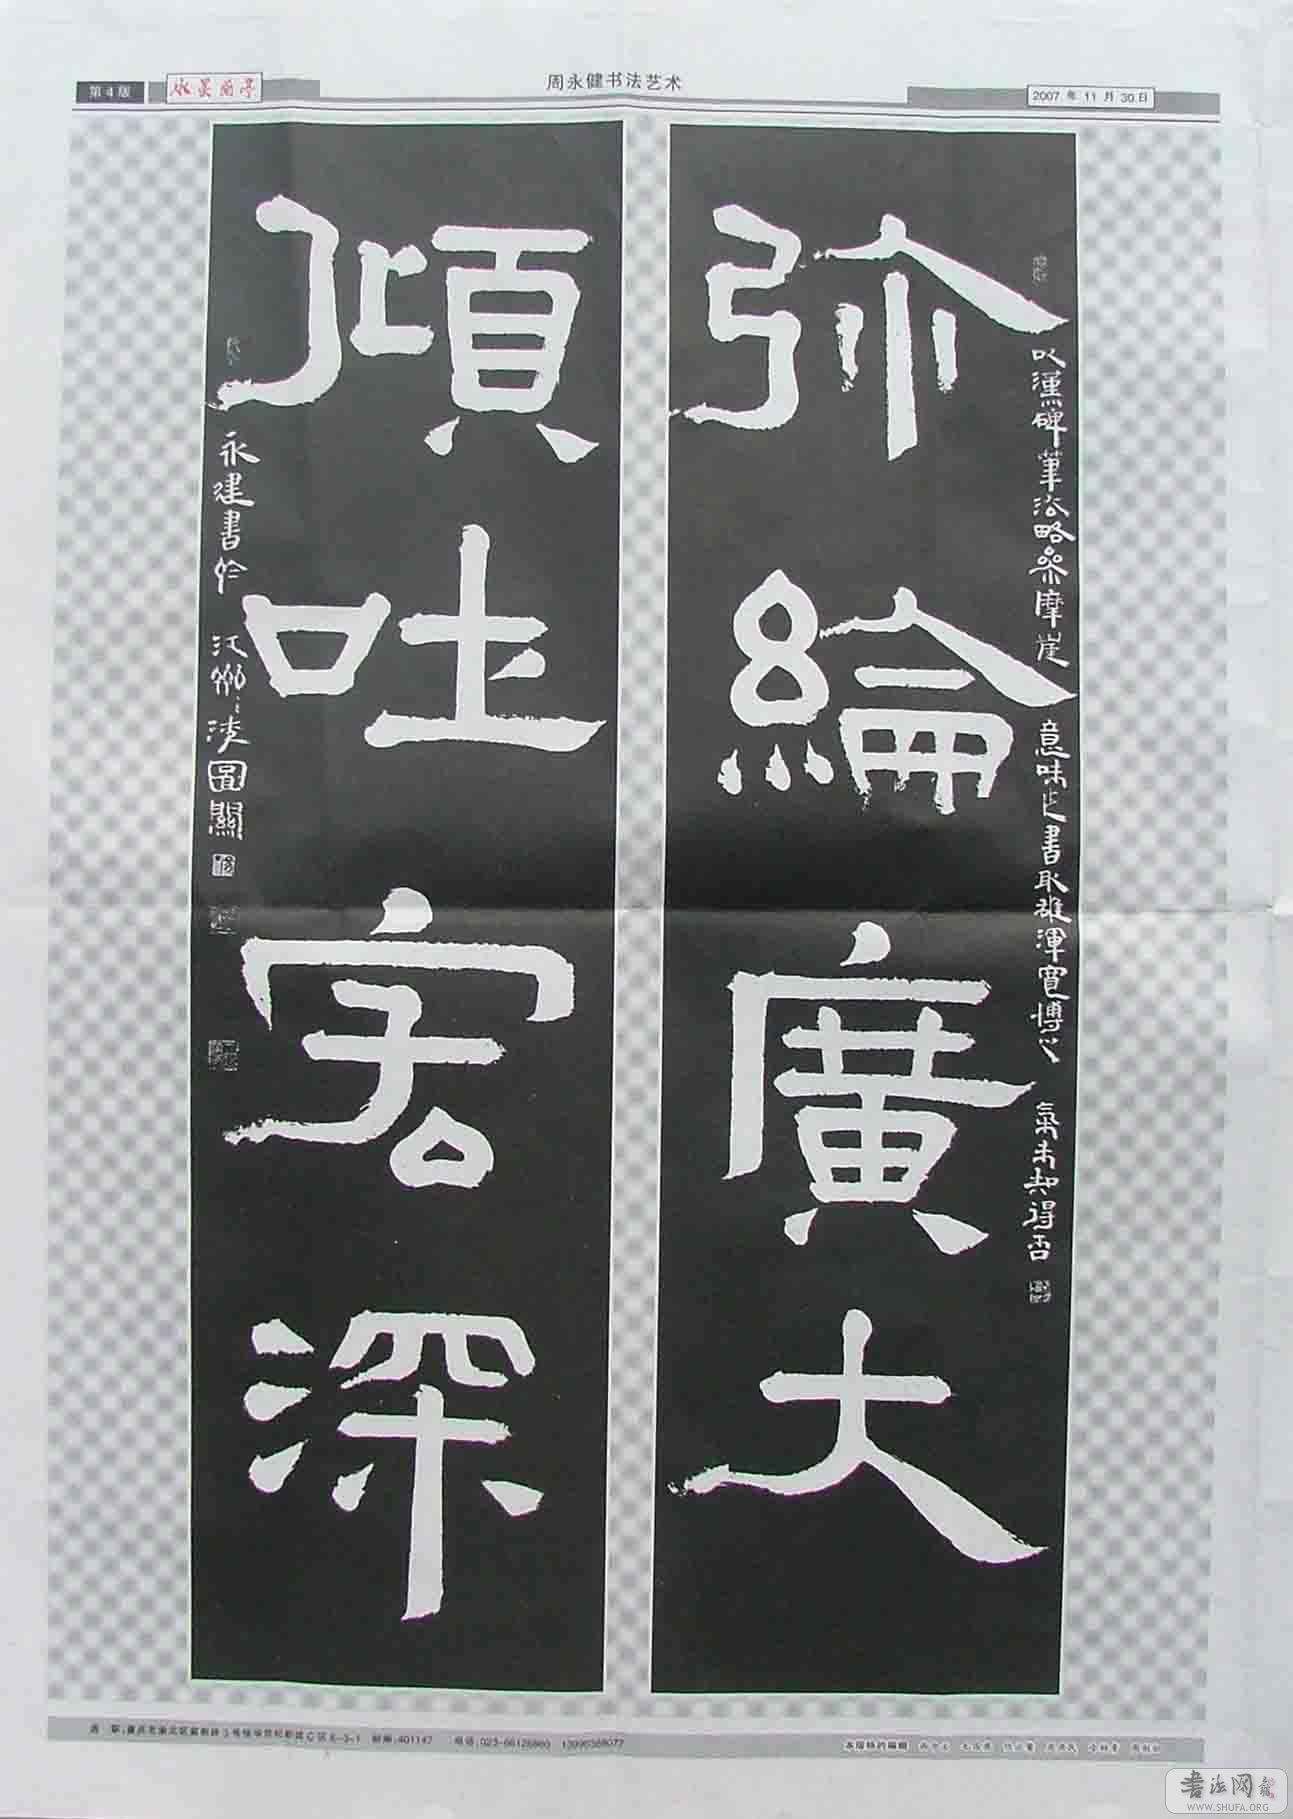 第4版
水墨兰亭
周永健书法艺术
2007 年 11 月 30 日
弥綸廣大
以漢碑筆法略參摩崖意味之書取雄渾寬博之氣未知得否
傾吐宏深
永建書於江州
邮编:401147
书法网
WWW.SHUFA.ORG